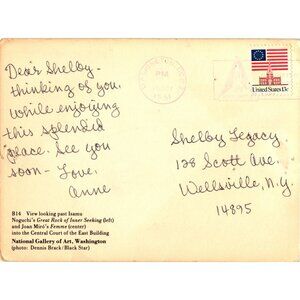 Dear Shelby -
thinking of you,
while enjoying
this splendid
place. See you
soon - Love,
Anne
PM
1981
United States 13c
Shelby Legacy
128 Scott Ave.
Wellsville, N.Y.
14895
B14 View looking past Isamu
Noguchi's Great Rock of Inner Seeking (left)
and Joan Miró's Femme (center)
into the Central Court of the East Building
National Gallery of Art, Washington
(photo: Dennis Brack/Black Star)